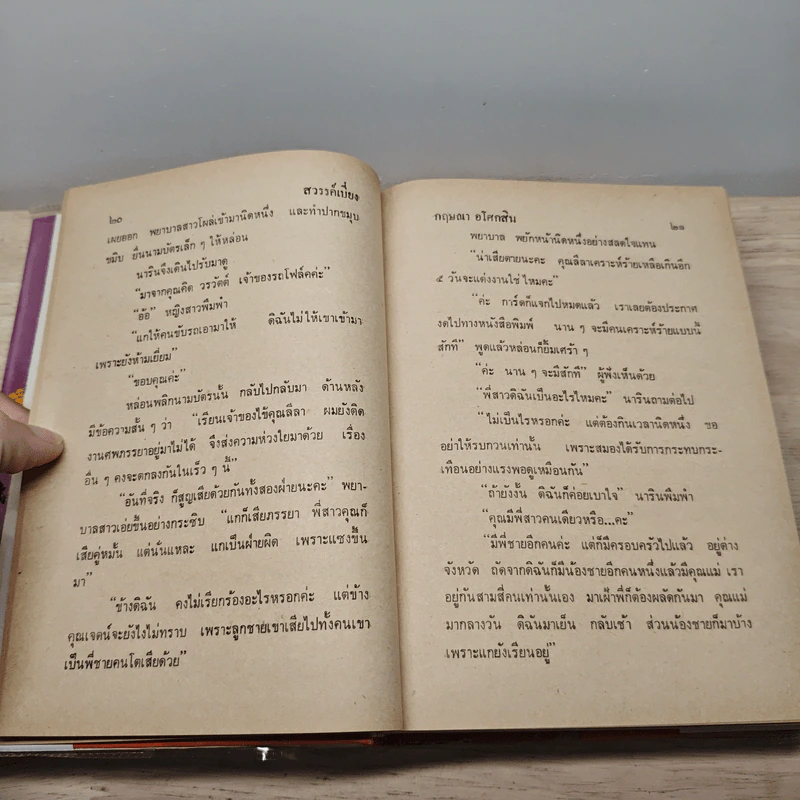 ๒๐ สวรรค์เบี่ยง
เผยออก พยาบาลสาวโผล่เข้ามานิดหนึ่ง และทำปากขมุบ
ขมิบ ยื่นนามบัตรเล็ก ๆ ให้หล่อน
นารินจึงเดินไปรับมาดู
“มาจากคุณคิด วรวัตต์ เจ้าของรถโฟล์คค่ะ”
“อ้อ” หญิงสาวพึมพำ
“แกให้คนขับรถเอามาให้ ดิฉันไม่ให้เขาเข้ามา
เพราะยังห้ามเยี่ยม”
“ขอบคุณค่ะ”
หล่อนพลิกนามบัตรนั้น กลับไปกลับมา ด้านหลัง
มีข้อความสั้น ๆ ว่า “เรียนเจ้าของไข้คุณลีลา ผมยังติด
งานศพภรรยาอยู่มาไม่ได้ จึงส่งความห่วงใยมาด้วย เรื่อง
อื่น ๆ คงจะตกลงกันในเร็ว ๆ นี้”
“อันที่จริง ก็สูญเสียด้วยกันทั้งสองฝ่ายนะคะ” พยา-
บาลสาวเอ่ยขึ้นอย่างกระซิบ “แกก็เสียภรรยา พี่สาวคุณก็
เสียคู่หมั้น แต่นั่นแหละ แกเป็นฝ่ายผิด เพราะแซงขึ้น
มา”
“ข้างดิฉัน คงไม่เรียกร้องอะไรหรอกค่ะ แต่ข้าง
คุณเจตน์จะยังไงไม่ทราบ เพราะลูกชายเขาเสียไปทั้งคนเขา
เป็นพี่ชายคนโตเสียด้วย”
กฤษณา อโศกสิน ๒๑
พยาบาล พยักหน้านิดหนึ่งอย่างสลดใจแทน
“น่าเสียดายนะคะ คุณลีลาเคราะห์ร้ายเหลือเกินอีก
๕ วันจะแต่งงานใช่ไหมคะ”
“ค่ะ การ์ดก็แจกไปหมดแล้ว เราเลยต้องประกาศ
งดไปทางหนังสือพิมพ์ นาน ๆ จะมีคนเคราะห์ร้ายแบบนี้
สักที” พูดแล้วหล่อนก็ยิ้มเศร้า ๆ
“ค่ะ นาน ๆ จะมีสักที” ผู้ฟังเห็นด้วย
“พี่สาวดิฉันเป็นอะไรไหมคะ” นารินถามต่อไป
“ไม่เป็นไรหรอกค่ะ แต่ต้องกินเวลานิดหนึ่ง ขอ
อย่าให้รบกวนเท่านั้น เพราะสมองได้รับการกระทบกระ-
เทือนอย่างแรงพอดูเหมือนกัน”
“ถ้ายังงั้น ดิฉันก็ค่อยเบาใจ” นารินพึมพำ
“คุณมีพี่สาวคนเดียวหรือ...คะ”
“มีพี่ชายอีกคนค่ะ แต่ก็มีครอบครัวไปแล้ว อยู่ต่าง
จังหวัด ถัดจากดิฉันก็มีน้องชายอีกคนหนึ่งแล้วมีคุณแม่ เรา
อยู่กันสามสี่คนเท่านั้นเอง มาเฝ้าพี่ก็ต้องผลัดกันมา คุณแม่
มากลางวัน ดิฉันมาเย็น กลับเช้า ส่วนน้องชายก็มาบ้าง
เพราะแกยังเรียนอยู่”